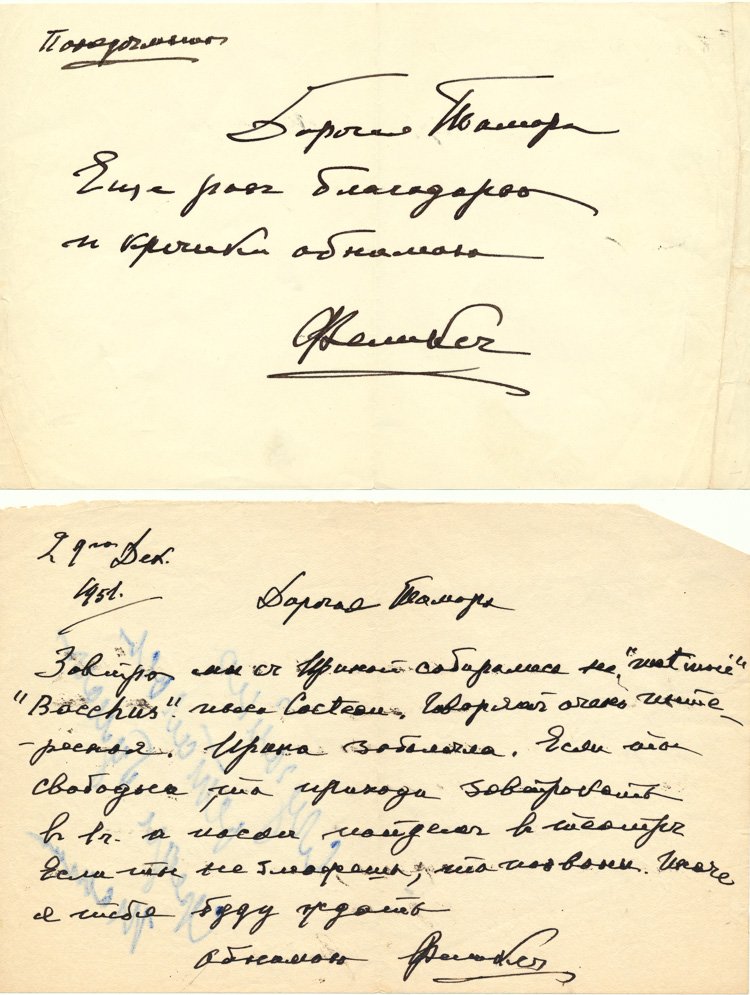 Понедѣльникъ
Дорогая Тамара
Еще разъ благодарю
и крѣпко обнимаю
Феликсъ
2 го Дек.
1951.
Дорогая Тамара
Завтра мы съ Ириной собирались на "matinée"
"Bacchus". пьеса Cocteau. Говорятъ очень инте-
-ресная. Ирина заболѣла. Если ты
свободна, то приходи завтракать
въ 1 ч. а послѣ пойдемъ въ театръ
Если ты не можешь, то позвони. Иначе
я тебя буду ждать
обнимаю Феликсъ